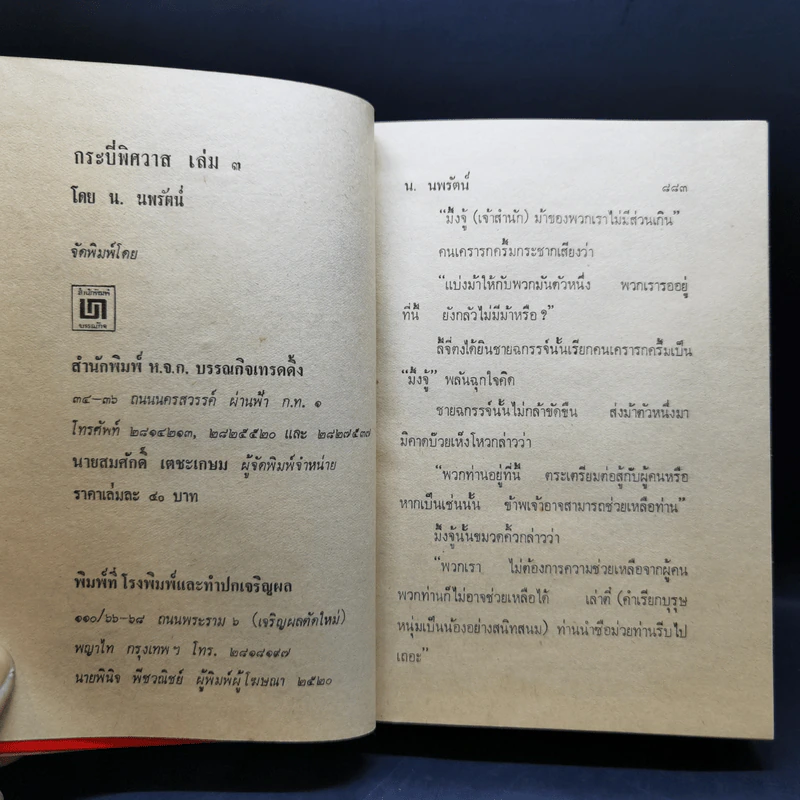 กระบี่พิศวาส เล่ม ๓
โดย น. นพรัตน์
จัดพิมพ์โดย
สำนักพิมพ์
บรรณกิจ
สำนักพิมพ์ ห.จ.ก. บรรณกิจเทรดดิ้ง
๓๔-๓๖ ถนนนครสวรรค์ ผ่านฟ้า ก.ท. ๑
โทรศัพท์ ๒๘๑๔๒๑๓, ๒๘๒๕๕๒๐ และ ๒๘๒๗๕๓๗
นายสมศักดิ์ เตชะเกษม ผู้จัดพิมพ์จำหน่าย
ราคาเล่มละ ๔๐ บาท
พิมพ์ที่ โรงพิมพ์และทำปกเจริญผล
๑๑๐/๖๖-๖๘ ถนนพระราม ๖ (เจริญผลตัดใหม่)
พญาไท กรุงเทพฯ โทร. ๒๘๑๘๑๙๗
นายพินิจ พีชวณิชย์ ผู้พิมพ์ผู้โฆษณา ๒๕๒๐
น. นพรัตน์ ๘๘๓
“มึ้งจู้ (เจ้าสำนัก) ม้าของพวกเราไม่มีส่วนเกิน”
คนเครารกครึ้มกระชากเสียงว่า
“แบ่งม้าให้กับพวกมันตัวหนึ่ง พวกเรารออยู่
ที่นี้ ยังกลัวไม่มีม้าหรือ ?”
ลี้จี่ตงได้ยินชายฉกรรจ์นั้นเรียกคนเครารกครึ้มเป็น
“มึ้งจู้” พลันฉุกใจคิด
ชายฉกรรจ์นั้นไม่กล้าขัดขืน ส่งม้าตัวหนึ่งมา
มิคาดบ๊วยเห็งโหวกล่าวว่า
“พวกท่านอยู่ที่นี้ ตระเตรียมต่อสู้กับผู้คนหรือ
หากเป็นเช่นนั้น ข้าพเจ้าอาจสามารถช่วยเหลือท่าน”
มึ้งจู้นั้นขมวดคิ้วกล่าวว่า
“พวกเรา ไม่ต้องการความช่วยเหลือจากผู้คน
พวกท่านก็ไม่อาจช่วยเหลือได้ เล่าตี๋ (คำเรียกบุรุษ
หนุ่มเป็นน้องอย่างสนิทสนม) ท่านนำซือม่วยท่านรีบไป
เถอะ”